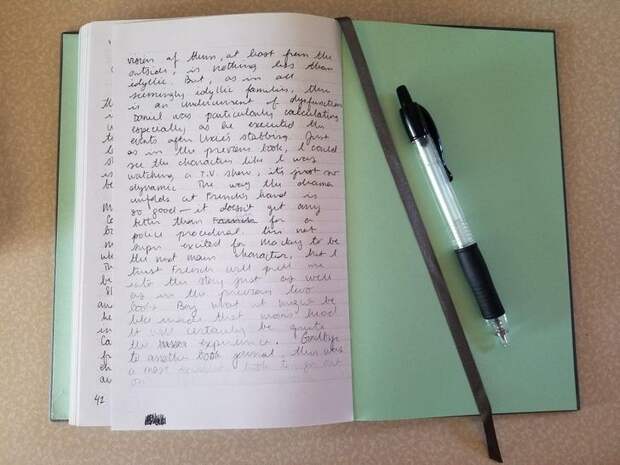 vision of them, at least from the
outside, is nothing less than
idyllic. But, as in all
seemingly idyllic families, there
is an undercurrent of dysfunction
Daniel was particularly calculating
especially as he executed the
events after Lexie's stabbing. Just
as in the previous book, I could
see the characters like I was
watching a T.V show, it's just so
dynamic. The way the drama
unfolds at French's hand is
so good — it doesn't get any
better than for a
police procedural. I'm not
super excited for Mackey to be
the next main character, but I
trust French will pull me
into the story just as well
as in the previous two
books. Boy what it might be
like inside that man's head
It will certainly be quite
the experience. Goodbye
to another book journal, this was
a most book to go out
on
42